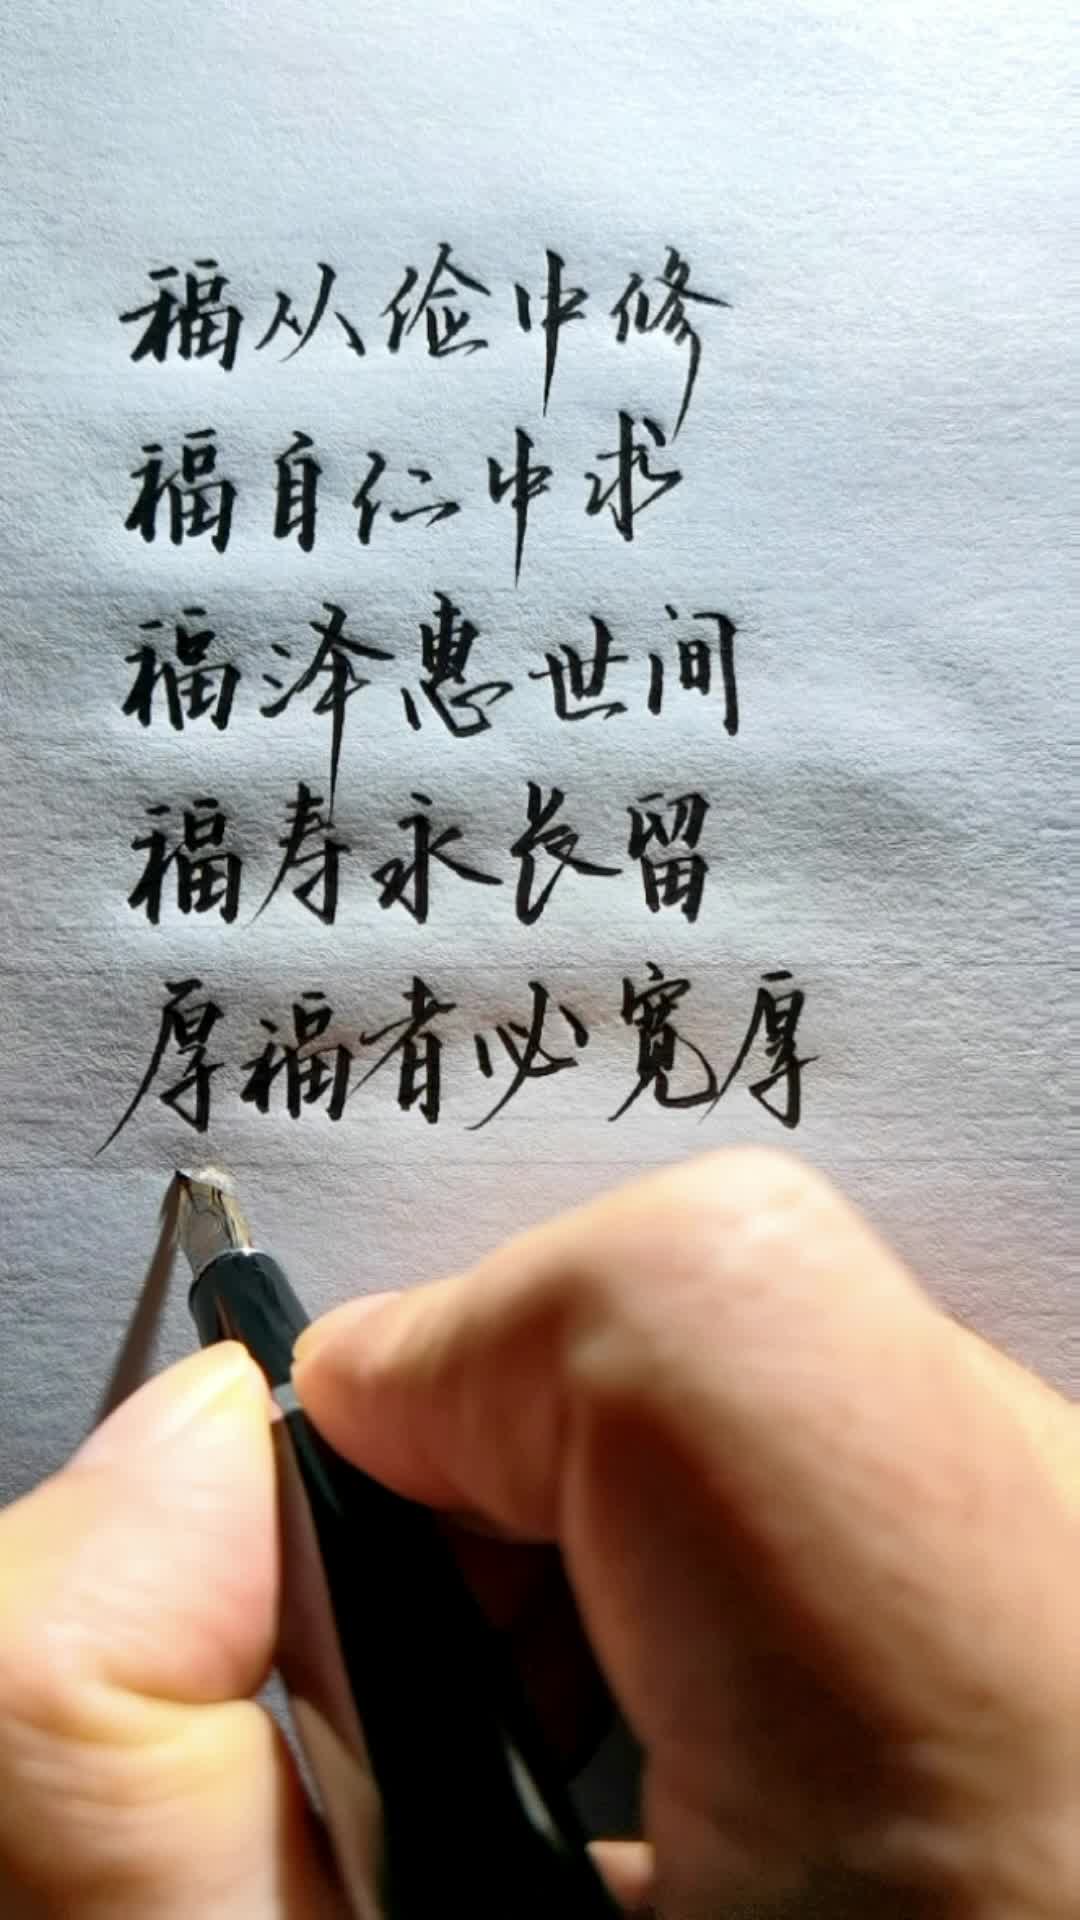 福从俭中修
福自仁中求
福泽惠世间
福寿永长留
厚福者必宽厚